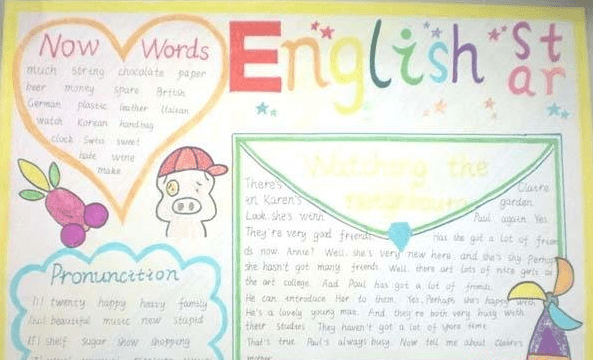 Now Words
much string chocolate paper
beer money spare British
German plastic leather Italian
watch Korean handbag
clock Swiss sweet
hate wine
make
English
St
ar
Watching the
neighbours
There's Claire
in Karen's garden.
Look, she's with Paul again. Yes.
They're very good friends. Has she got a lot of frien
ds now, Annie? Well, she's very new here, and she's shy. Perhaps
she hasn't got many friends. Well, there are lots of nice girls at
the art college. And Paul has got a lot of friends.
He can introduce her to them. Yes, Perhaps she's happy with
He's a lovely young man. And they're both very busy with
their studies. They haven't got a lot of spare time.
That's true. Paul's always busy. Now tell me about Claire's
mother.
Pronuncition
twenty happy heavy family
beautiful music new stupid
shelf sugar show shopping